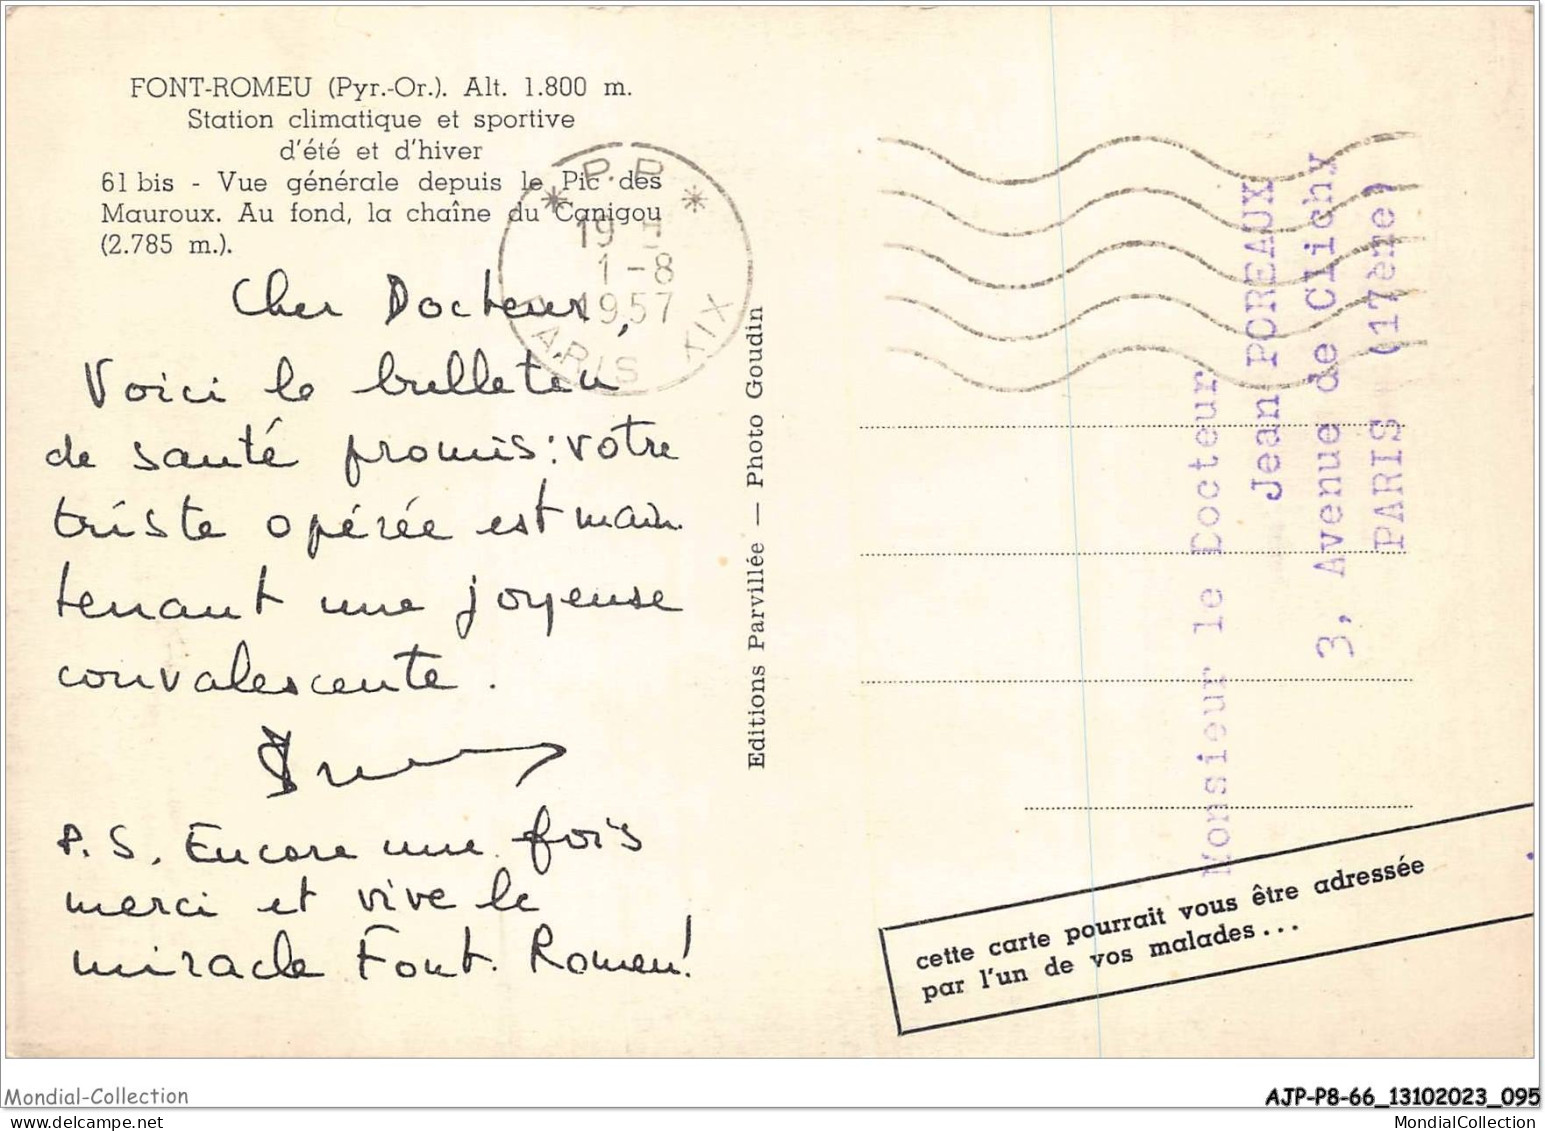 FONT-ROMEU (Pyr.-Or.). Alt. 1.800 m.
Station climatique et sportive
d'été et d'hiver
61 bis - Vue générale depuis le Pic des
Mauroux. Au fond, la chaîne du Canigou
(2.785 m.).
Cher Docteur,
Voici le bulletin
de santé promis : votre
triste opérée est main
tenant une joyeuse
convalescente.
P.S. Encore une fois
merci et vive le
miracle Font-Romeu!
* P.P *
1-8
1957
PARIS XIX
Editions Parvillée — Photo Goudin
Monsieur le Docteur
Jean POREAUX
3, Avenue de Clichy
PARIS (17ème)
cette carte pourrait vous être adressée
par l'un de vos malades...
Mondial-Collection
AJP-P8-66_13102023_095
MondialCollection
MondialCollection